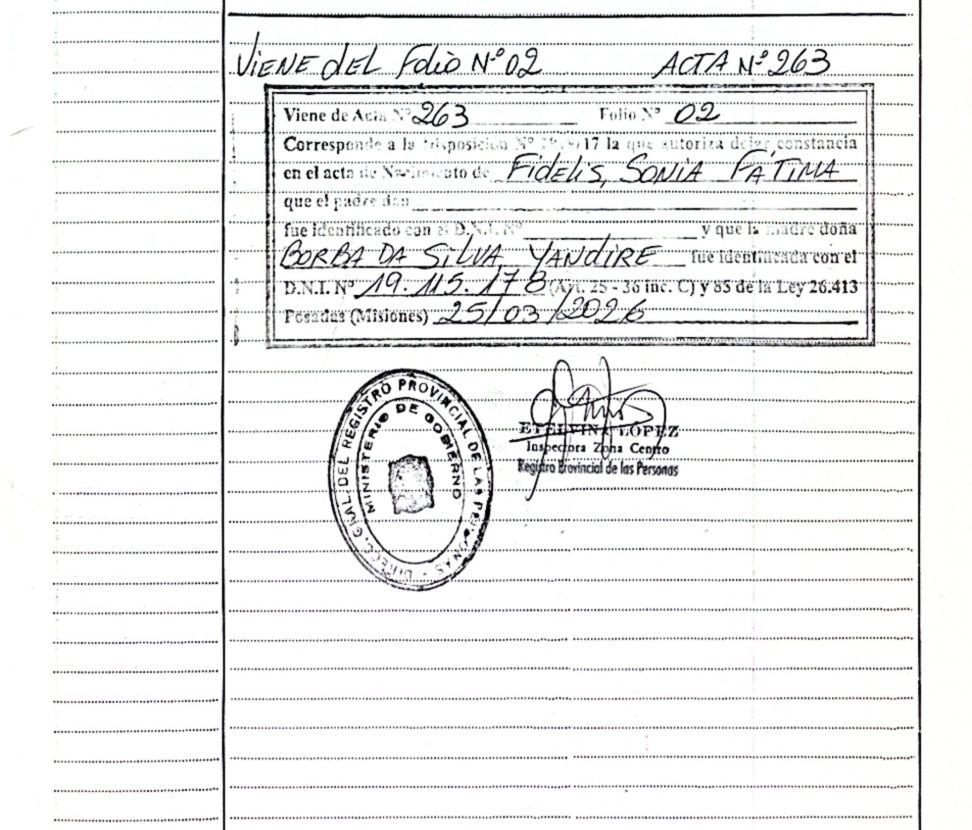 VIENE DEL FOLIO N° 02 ACTA N° 263
Viene de Acta N° 263 Folio N° 02
Corresponde a la Disposición N° /17 la que autoriza dejar constancia
en el acta de Nacimiento de FIDELIS, SONIA FATIMA
que el padre don
fue identificado con el D.N.I. N° y que la madre doña
BORBA DA SILVA YANDIRE fue identificada con el
D.N.I. N° 19.115.178 (Art. 25 - 36 inc. C) y 85 de la Ley 26.413
Posadas (Misiones) 25/03/2026
DIREC. GRAL DEL REGISTRO PROVINCIAL DE LAS PERSONAS
MINISTERIO DE GOBIERNO
ETELVINA LOPEZ
Inspectora Zona Centro
Registro Provincial de las Personas